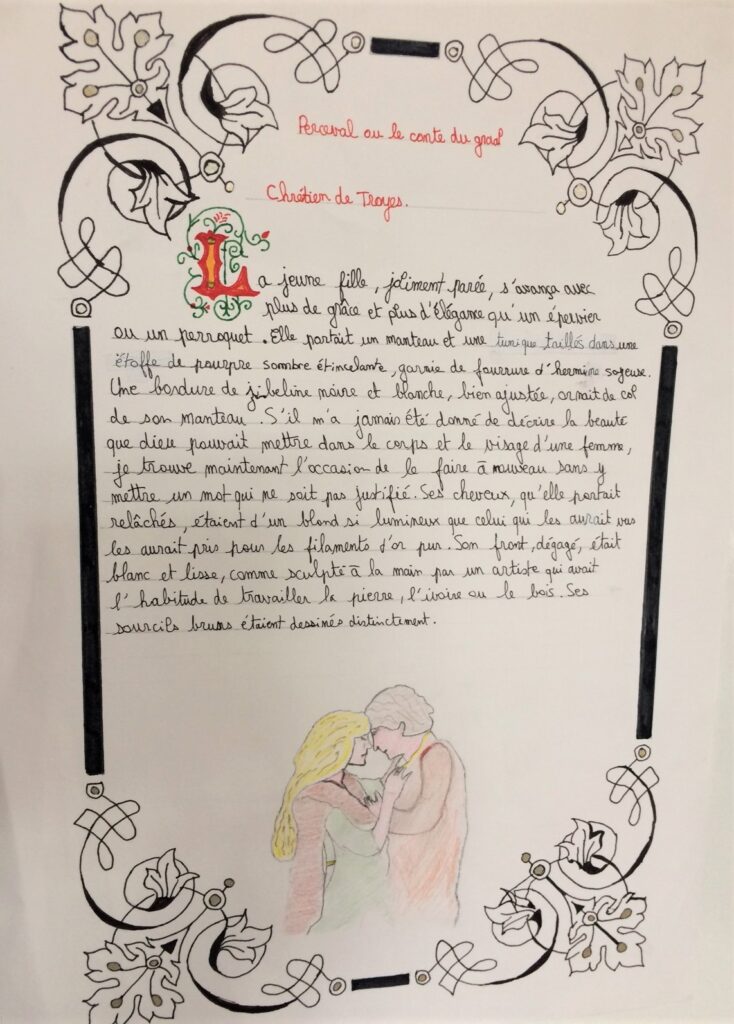 Perceval ou le conte du graal
Chrétien de Troyes.
La jeune fille, joliment parée, s'avança avec
plus de grâce et plus d'élégance qu'un épervier
ou un perroquet. Elle portait un manteau et une tunique taillés dans une
étoffe de pourpre sombre étincelante, garnie de fourrure d'hermine soyeuse.
Une bordure de zibeline noire et blanche, bien ajustée, ornait de col
de son manteau. S'il m'a jamais été donné de décrire la beauté
que dieu pouvait mettre dans le corps et le visage d'une femme,
je trouve maintenant l'occasion de le faire à nouveau sans y
mettre un mot qui ne soit pas justifié. Ses cheveux, qu'elle portait
relâchés, étaient d'un blond si lumineux que celui qui les aurait vus
les aurait pris pour les filaments d'or pur. Son front, dégagé, était
blanc et lisse, comme sculpté à la main par un artiste qui avait
l'habitude de travailler la pierre, l'ivoire ou le bois. Ses
sourcils bruns étaient dessinés distinctement.